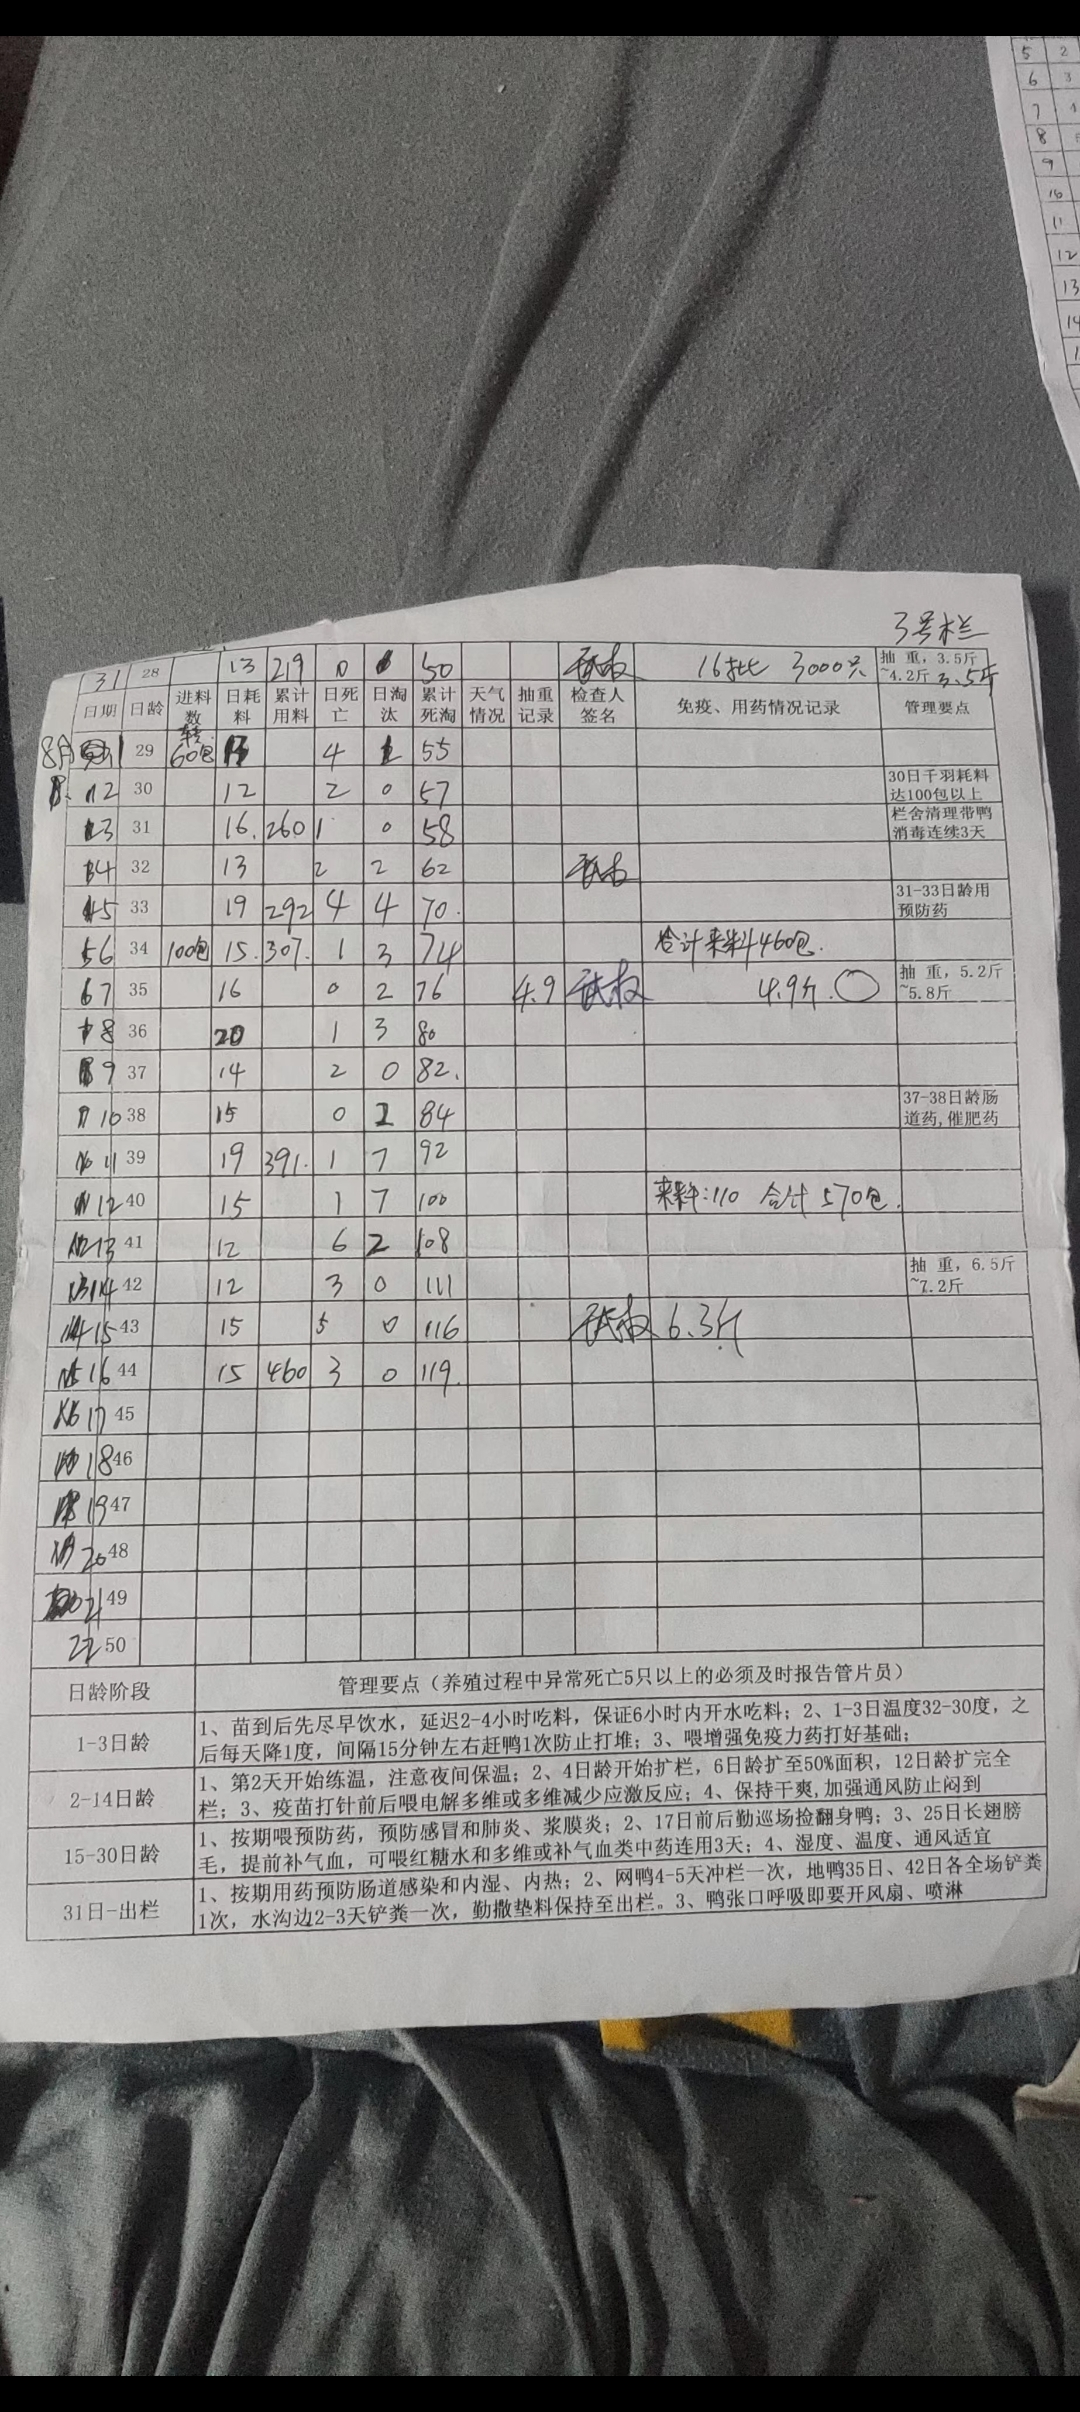 5 2
6 3
7
8
9
10
11
12
13
14
3号栏
31 28 13 219 0 50 16批 3000只 抽 重，3.5斤~4.2斤 3.5斤
日期 日龄 进料数 日耗料 累计用料 日死亡 日淘汰 累计死淘 天气情况 抽重记录 检查人签名 免疫、用药情况记录 管理要点
8月 1 29 转60包 4 1 55
2 30 12 2 0 57 30日千羽耗料达100包以上
3 31 16. 260 1 0 58 栏舍清理带鸭消毒连续3天
4 32 13 2 2 62
5 33 19 292 4 4 70. 31-33日龄用预防药
6 34 100包 15. 307. 1 3 74 合计来料460包.
7 35 16 0 2 76 4.9 4.9斤. 抽 重，5.2斤~5.8斤
8 36 20 1 3 80
9 37 14 2 0 82.
10 38 15 0 2 84 37-38日龄肠道药,催肥药
11 39 19 391. 1 7 92
12 40 15 1 7 100 来料:110 合计570包.
13 41 12 6 2 108
14 42 12 3 0 111 抽 重，6.5斤~7.2斤
15 43 15 5 0 116 6.3斤
16 44 15 460 3 0 119.
17 45
18 46
19 47
20 48
21 49
22 50
日龄阶段 管理要点（养殖过程中异常死亡5只以上的必须及时报告管片员）
1-3日龄 1、苗到后先尽早饮水，延迟2-4小时吃料，保证6小时内开水吃料；2、1-3日温度32-30度，之
后每天降1度，间隔15分钟左右赶鸭1次防止打堆；3、喂增强免疫力药打好基础；
2-14日龄 1、第2天开始练温，注意夜间保温；2、4日龄开始扩栏，6日龄扩至50%面积，12日龄扩完全
栏；3、疫苗打针前后喂电解多维或多维减少应激反应；4、保持干爽,加强通风防止闷到
15-30日龄 1、按期喂预防药，预防感冒和肺炎、浆膜炎；2、17日前后勤巡场捡翻身鸭；3、25日长翅膀
毛，提前补气血，可喂红糖水和多维或补气血类中药连用3天；4、湿度、温度、通风适宜
31日-出栏 1、按期用药预防肠道感染和内湿、内热；2、网鸭4-5天冲栏一次，地鸭35日、42日各全场铲粪
1次，水沟边2-3天铲粪一次，勤撒垫料保持至出栏。3、鸭张口呼吸即要开风扇、喷淋